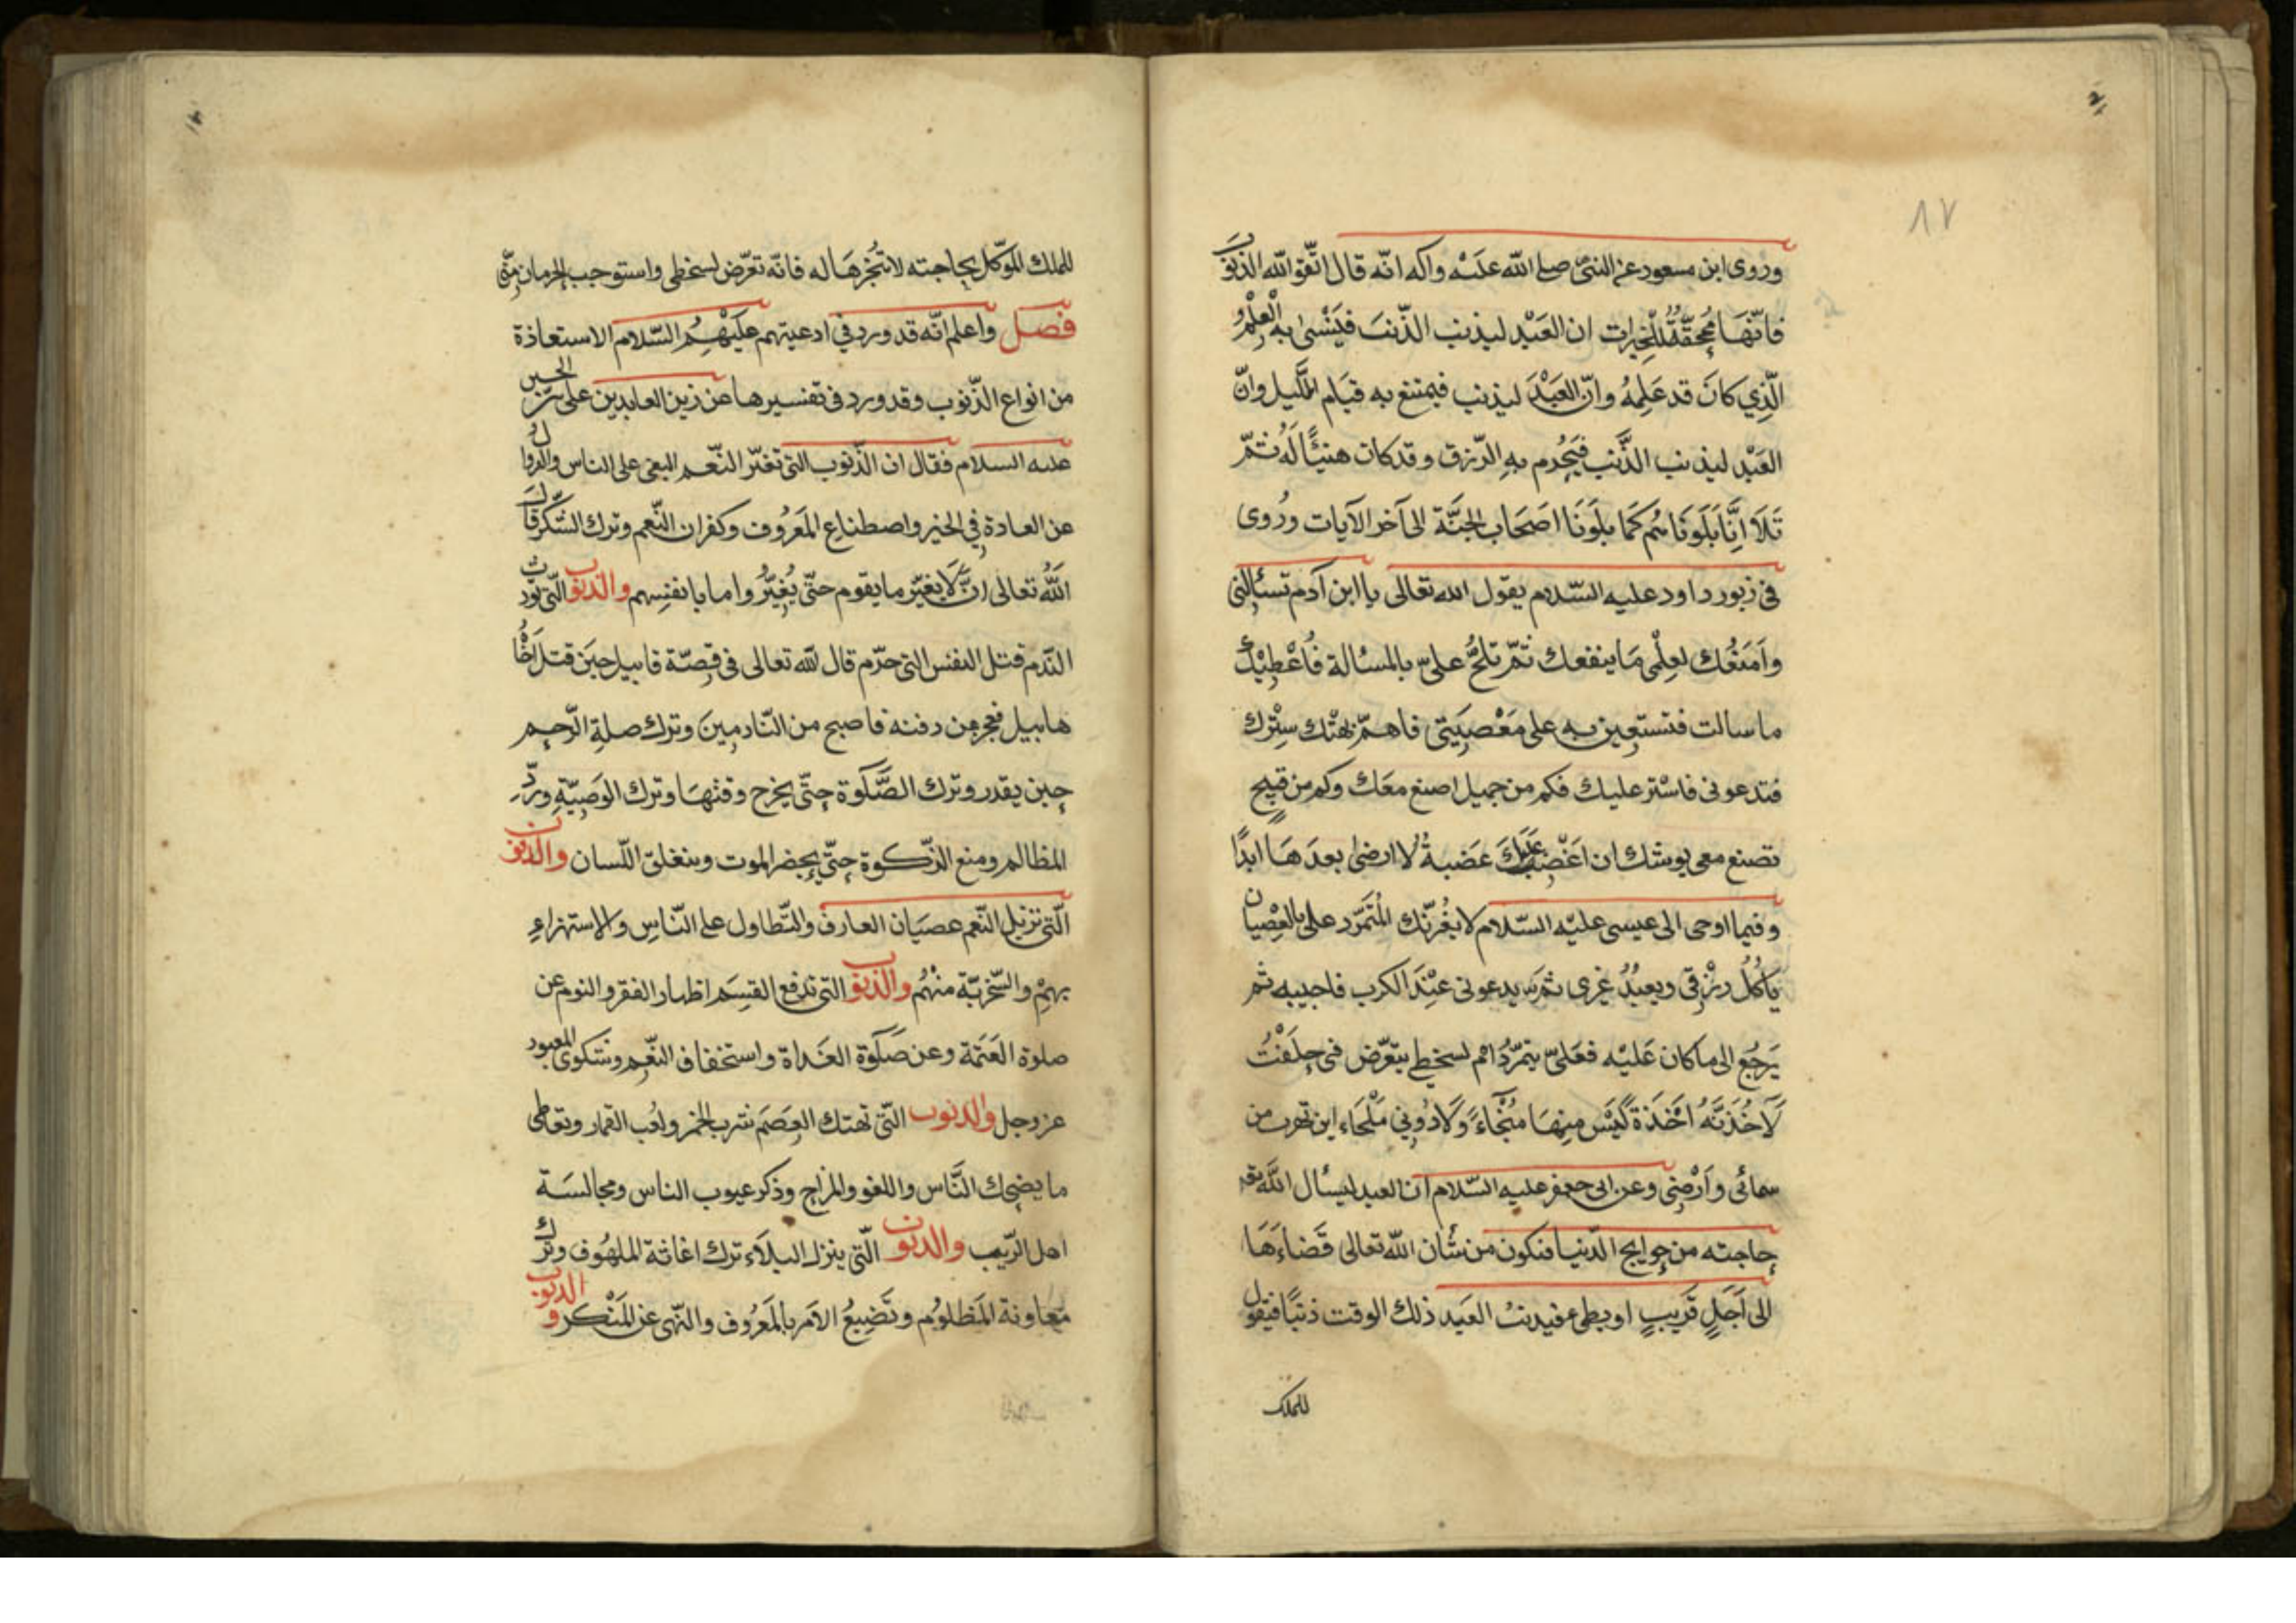 ٨٧
وروى ابن مسعود عن النبي صلى الله عليه وآله انّه قال اتّقوا الله الذنوب
فانّها مُمحقّةُ للخيرات ان العَبْد ليذنب الذّنبَ فيَنْسىٰ به الْعِلْمُ
الّذِي كانَ قد عَلِمهُ وانّ العَبْدَ ليذنب فيمتنع به قيَام اللّيل وانّ
العَبْد ليذنب الذَّنب فيَحْرم بهِ الرّزق وقد كان هنيئًا لَهُ ثمّ
تَلَا اِنَّا بَلَونَاهُم كَمَا بلَونَا اصَحَاب الجنَّة الى آخر الآيات ورُوى
فى زبور داود عليه السّلام يقول الله تعالى يا ابن آدم تسئالنى
وأمنَعُك لعِلْمى مَا ينفعك ثمّ تلحُّ علىّ بالمسئالة فأُعْطِيْك
ما سالت فتستعين به على مَعْصِيَتى فاهمّ بهتْك سِتْرك
فتدعونى فاسْتر عليك فكم من جميل اصنع معَك وكم من قبيح
تصنع معى يوشك ان اغْضبَ عَلَيْكَ غَضبةُ لا ارضىٰ بعدَهَا ابدًا
وفيما اوحى الى عيسى عليه السّلام لا يغُرّنّك المُتَمَرّد علىّ بالعِصْيان
يَأكُلُ رِزْقى ويعبُدُ غيرى ثمّ يدعونى عِنْدَ الكرب فاجيبه ثم
يَرجُع الى ما كان عَليْه فعَلىّ يتمرّدُ ام لسخطى يتعرّض فبى حلَفْتُ
لَآخُذَنَّهُ اخْذَةً لَيْسَ منِهَا مَنْجَاءً وَلَا دُونِي مَلْجَاء اين تهرب من
سمائى وَارْضِى وعن ابى جعفر عليه السّلام ان العبد ليسئال اللّه تعَـ
حاجته من حوايج الدّنيا فيكون من شَأن اللّه تعالى قَضَاءَهَا
الى اَجَلٍ قَريبٍ او بطىء فيذنبُ العَبد ذلك الوقت ذنبًا فيقول
للملك
للملك الموَكّل بحاجته لا تُنجْزهَا له فانّه تعرّض لسخطى واستوجب الحرمان مِنّى
فصَل واعلم انّه قد ورد فى ادعيتهم عَلَيْهِمُ السّلام الاستعاذة
من انواع الذّنوب وقد ورد فى تفسيرها عن زين العابدين على بن الحسين
عليه السلام فقال ان الذّنوب التى تغيّر النّعم البغى على الناس والزوال
عن العادة فِي الخير واصطناع المَعرُوف وكفران النّعم وترك الشّكر قال
اللّهُ تعالى انَّ اللّهَ لَا يغيّر ما بقوم حتّى يُغيّرُوا ما بانفسِهم والذنوب الّتى تورث
النّدم قتل النفس التى حرّم قال لله تعالى فى قِصّة قابيل حينَ قتل اَخْاهُ
هابيل فعجز عن دفنه فاصبح من النّادمِينَ وترك صلِة الرّحِم
حين يقدر وترك الصَّلَوة حتّى يخرج وقتهَا وترك الوَصِيّةِ وردّ
المظالم ومنع الزّكوة حتّى يحضر الموت وينغلق اللّسان والذنوب
الّتى تزيل النّعم عصيَان العارف والتّطاول على النّاسِ والاستهزاءِ
بهِمْ والسّخريّة منْهُم والذنوب التى تدفع القِسَم اظهار الفقر والنوم عن
صلوة العَتمَة وعن صَلَوة الغَداة واستخفاف النّعِم وشكوى المعبود
عزوجل والذنوب التّى تهتك العِصَم شرب الخمر ولعب القمار وتعاطى
ما يضحِك النَّاس واللغو والمزاح وذكر عيوب الناس ومجالسَة
اهل الرّيب والذنوب الّتى ينزل البلَاء ترك اغاثة الملهُوف وترك
مُعاونة المَظلوُم وتَضِييعُ الاَمر بالمَعرُوف والنّهى عن المَنْكر و الذنوب